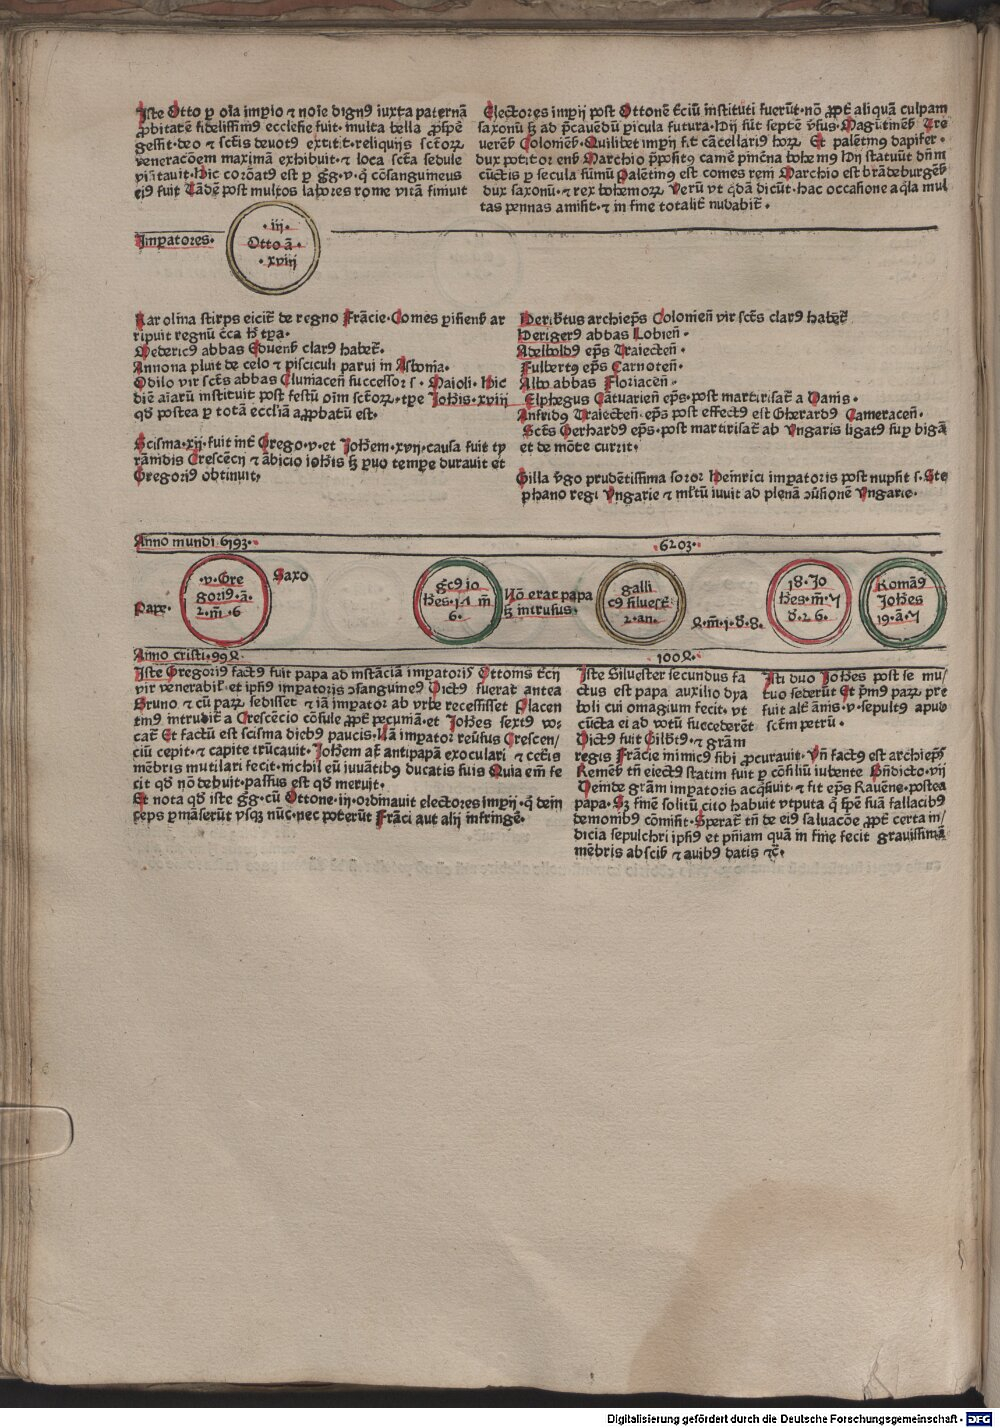 Iste Otto ꝑ oīa imꝑio ⁊ noīe dignꝰ iuxta paternā
ꝓbitatē fidelissimꝰ ecclesie fuit· multa bella ꝓspē
gessit· deo ⁊ sct̄is deuotꝰ extitit· reliquijs sct̄oꝝ
veneracōem maximā exhibuit· ⁊ loca sct̄a sedule
visitauit· Hic corōatꝰ est ꝑ gḡ· v· q̄ cōsanguineus
eiꝰ fuit Tādē post multos labores rome vitā finiuit
Electores imꝑij post Ottonē t̄ciū instituti fuerūt· nō ꝓpt̄ aliquā culpam
saxonū sꝫ ad p̄cauēdū ꝑicula futura· Hij sūt septē v̄sus· Magūtinēs̄ Tre
uerēs̄ Coloniēs̄· Quilibet imꝑij fit cācellariꝰ hoꝝ· Et palētinꝰ dapifer·
dux portitor ensis̄ Marchio p̄positꝰ camē pincna bohemꝰ Hij statuūt dn̄m
cūctis ꝑ secula sūmū Palētinꝰ est comes reni Marchio est brādeburgēs̄
dux saxonū· ⁊ rex bohemoꝝ Verū vt q̄dā dicūt· hac occasione aq̄la mul
tas pennas amisit· ⁊ in fine totalit̄ nudabit̄·
Imꝑatores·
· iij·
Otto ā·
· xviij
Karolina stirps eicit̄ de regno Frācie· Comes ꝑisiens̄ ar
ripuit regnū c̄ca h̄ tꝑa·
Medericꝰ abbas Eduens̄ clarꝰ habet̄·
Annona pluit de celo ⁊ pisciculi parui in Asbonia·
Odilo vir sct̄s abbas Cluniacen̄ successor s· Maioli· Hic
diē aīarū instituit post festū oīm sct̄oꝝ· tꝑe Joh̄is· xviij
qd̄ postea ꝑ totā eccl̄iā aꝓbatū est·
Scisma· xij· fuit int̄ Grego· v· et Joh̄em· xvij· causa fuit ty
rānidis Crescēcij ⁊ ābicio ioh̄is sꝫ ꝑuo tempe durauit et
Gregoriꝰ obtinuit,
Heribt̄us archieꝑs Colonien̄ vir sct̄s clarꝰ habet̄
Herigerꝰ abbas Lobien̄·
Adelboldꝰ eꝑs Traiecten̄·
Fulbertꝰ eꝑs Carnoten̄·
Albo abbas Floriacen̄·
Elphegus Cātuarien̄ eꝑs· post martirisat̄ a Danis·
Ansridꝰ Traiecten̄· eꝑs post effectꝰ est Gherardꝰ Cameracen̄·
Sct̄s Gerhardꝰ eꝑs· post martirisat̄ ab Vngaris ligatꝰ suꝑ bigā
et de mōte currit·
Gilla v̄go prudētissima soror Heinrici imꝑatoris post nupsit s· Ste
phano regi Vngarie ⁊ ml̄tū iuuit ad plenā ꝯuʾsionē Vngarie·
Anno mundi 6193·
6203·
Pape·
· v· Gre
goriꝰ· ā·
2· m̄· 6
Saxo
g̃cꝰ io
hēs· 17 m̄
6·
Nō erat papa
sꝫ intrusus·
galli
cꝰ siluest̄
2· an·
2· m̄· 1· d̄· 8·
18· Jo
hēs· m̄· 7
d̄· 26·
Romāꝰ
Joh̄es
19· ā· 7
Anno cristi· 992·
1002·
Iste Gregoriꝰ factꝰ fuit papa ad instāciā imꝑatoris Ottonis t̄cij
vir venerabil̄· et ipsiꝰ imꝑatoris ꝯsanguineꝰ Dictꝰ fuerat antea
Bruno ⁊ cū paꝝ sedisset ⁊ iā imꝑator ab vrbe recessisset Placen
tinꝰ intrudit̄ a Crescēcio cōsule ꝓpt̄ pecuniā· et Joh̄es sextꝰ vo·
cat̄ Et factū est scisma diebꝰ paucis· Nā imꝑator reūsus Crescen/
ciū cepit· ⁊ capite trūcauit· Joh̄em at̄ antipapā exoculari ⁊ cet̄is
mēbris mutilari fecit· nichil eū iuuātibꝰ ducatis suis Quia em̄ fe
cit qd̄ nō debuit· passus est qd̄ meruit·
Et nota qd̄ iste gḡ· cū Ottone· iij· ordinauit electores imꝑij· q̄ dein
ceps ꝑmāserūt vsqꝫ nūc· nec poterūt Frāci aut alij infringē·
Iste Siluester secundus fa
ctus est papa auxilio dya
boli cui omagium fecit· vt
cūcta ei ad votū succederēt
Dictꝰ fuit Gilbt̄ꝰ· ⁊ grām
regis Frācie inimicꝰ sibi ꝓcurauit· Vn̄ factꝰ est archieꝑs
Remēs̄ tn̄ eiectꝰ statim fuit ꝑ cōsiliū iubente Bn̄dicto· vij
Deinde grām imꝑatoris acq̄siuit· ⁊ fit eꝑs Rauēne· postea
papa· Sꝫ finē solitū cito habuit vtputa q̄ spē suā fallacibꝰ
demonibꝰ cōmisit· Sperat̄ tn̄ de eiꝰ saluacōe ꝓpt̄ certa in/
dicia sepulchri ipsiꝰ et pn̄iam quā in fine fecit grauissimā
mēbris abscis̄ ⁊ auibꝰ datis ⁊c̄·
Isti duo Joh̄es post se mu/
tuo sederūt Et p̄mꝰ paꝝ pre
fuit alt̄ ānis· v· sepultꝰ apud
sct̄m petrū·
Digitalisierung gefördert durch die Deutsche Forschungsgemeinschaft - DFG